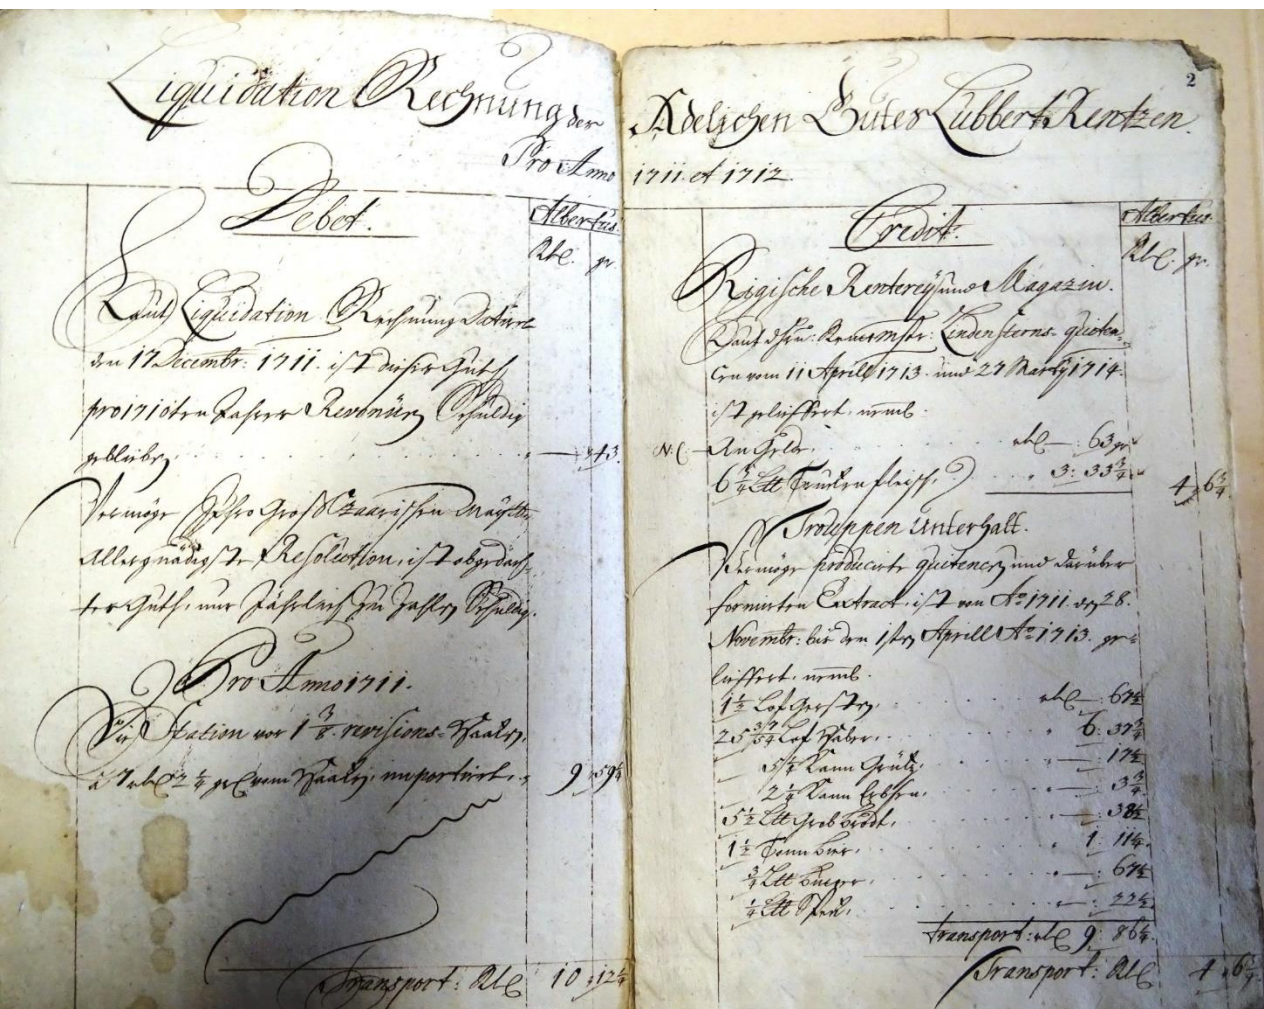 Liquidation Rechnung der
Pro Anno
Debet.
Albertus.
Rtl. gr.
Laut Liquidation Rechnung Datiret
den 17 Decembr: 1711. ist dieses Guth
pro 1710ten Jahres Revenüen Schuldig
geblieben, — 43.
Vermöge Ihro Groß Czaarischen Maÿtt:
Allergnädigste Resolution, ist obgedach-
tes Guth, nur Jährlich zu Zahlen Schuldig.
Pro Anno 1711.
Station vor 1 3/8 revisions-Haaken,
à 7 rtl 2 1/4 gr vom Haaken, importiret, 9 59 1/4
Transport: Rtl 10 12 1/4
2
Adelichen Gutes Lubbert Rentzen.
1711. et 1712.
Credit.
Albertus.
Rtl. gr.
Rigische Renterey und Magazin.
Laut Lindensterns quiten-
cen vom 11 Aprill 1713. und 27 Marty 1714.
ist geliefert. nemb.
An Gelde. rtl —: 63 gr
6 3/4 Ltt Trucken fleisch, 3: 33 3/4
4 6 3/4
Trouppen Unterhalt.
Vermöge producirte quitencen und darüber
formirten Extract, ist von Ao 1711. den 28.
Novembr: bis den 1sten Aprill Ao 1713. ge-
lieffert. nemb.
1 1/2 Lof Gersten, rtl —: 67 1/2
Lof Haber, 6: 37 3/4
5 1/4 Kann Grütz, —: 17 1/2
2 1/4 Kann Erbsen, —: 3 3/4
5 1/2 Ltt Grob brodt, —: 38 1/2
1 1/2 Tonn bier, 1: 11 1/4
3/4 Ltt —: 67 1/2
1/4 Ltt Speck, —: 22 1/2
Transport: rtl 9: 86 1/4
Transport: Rtl 4 6 3/4